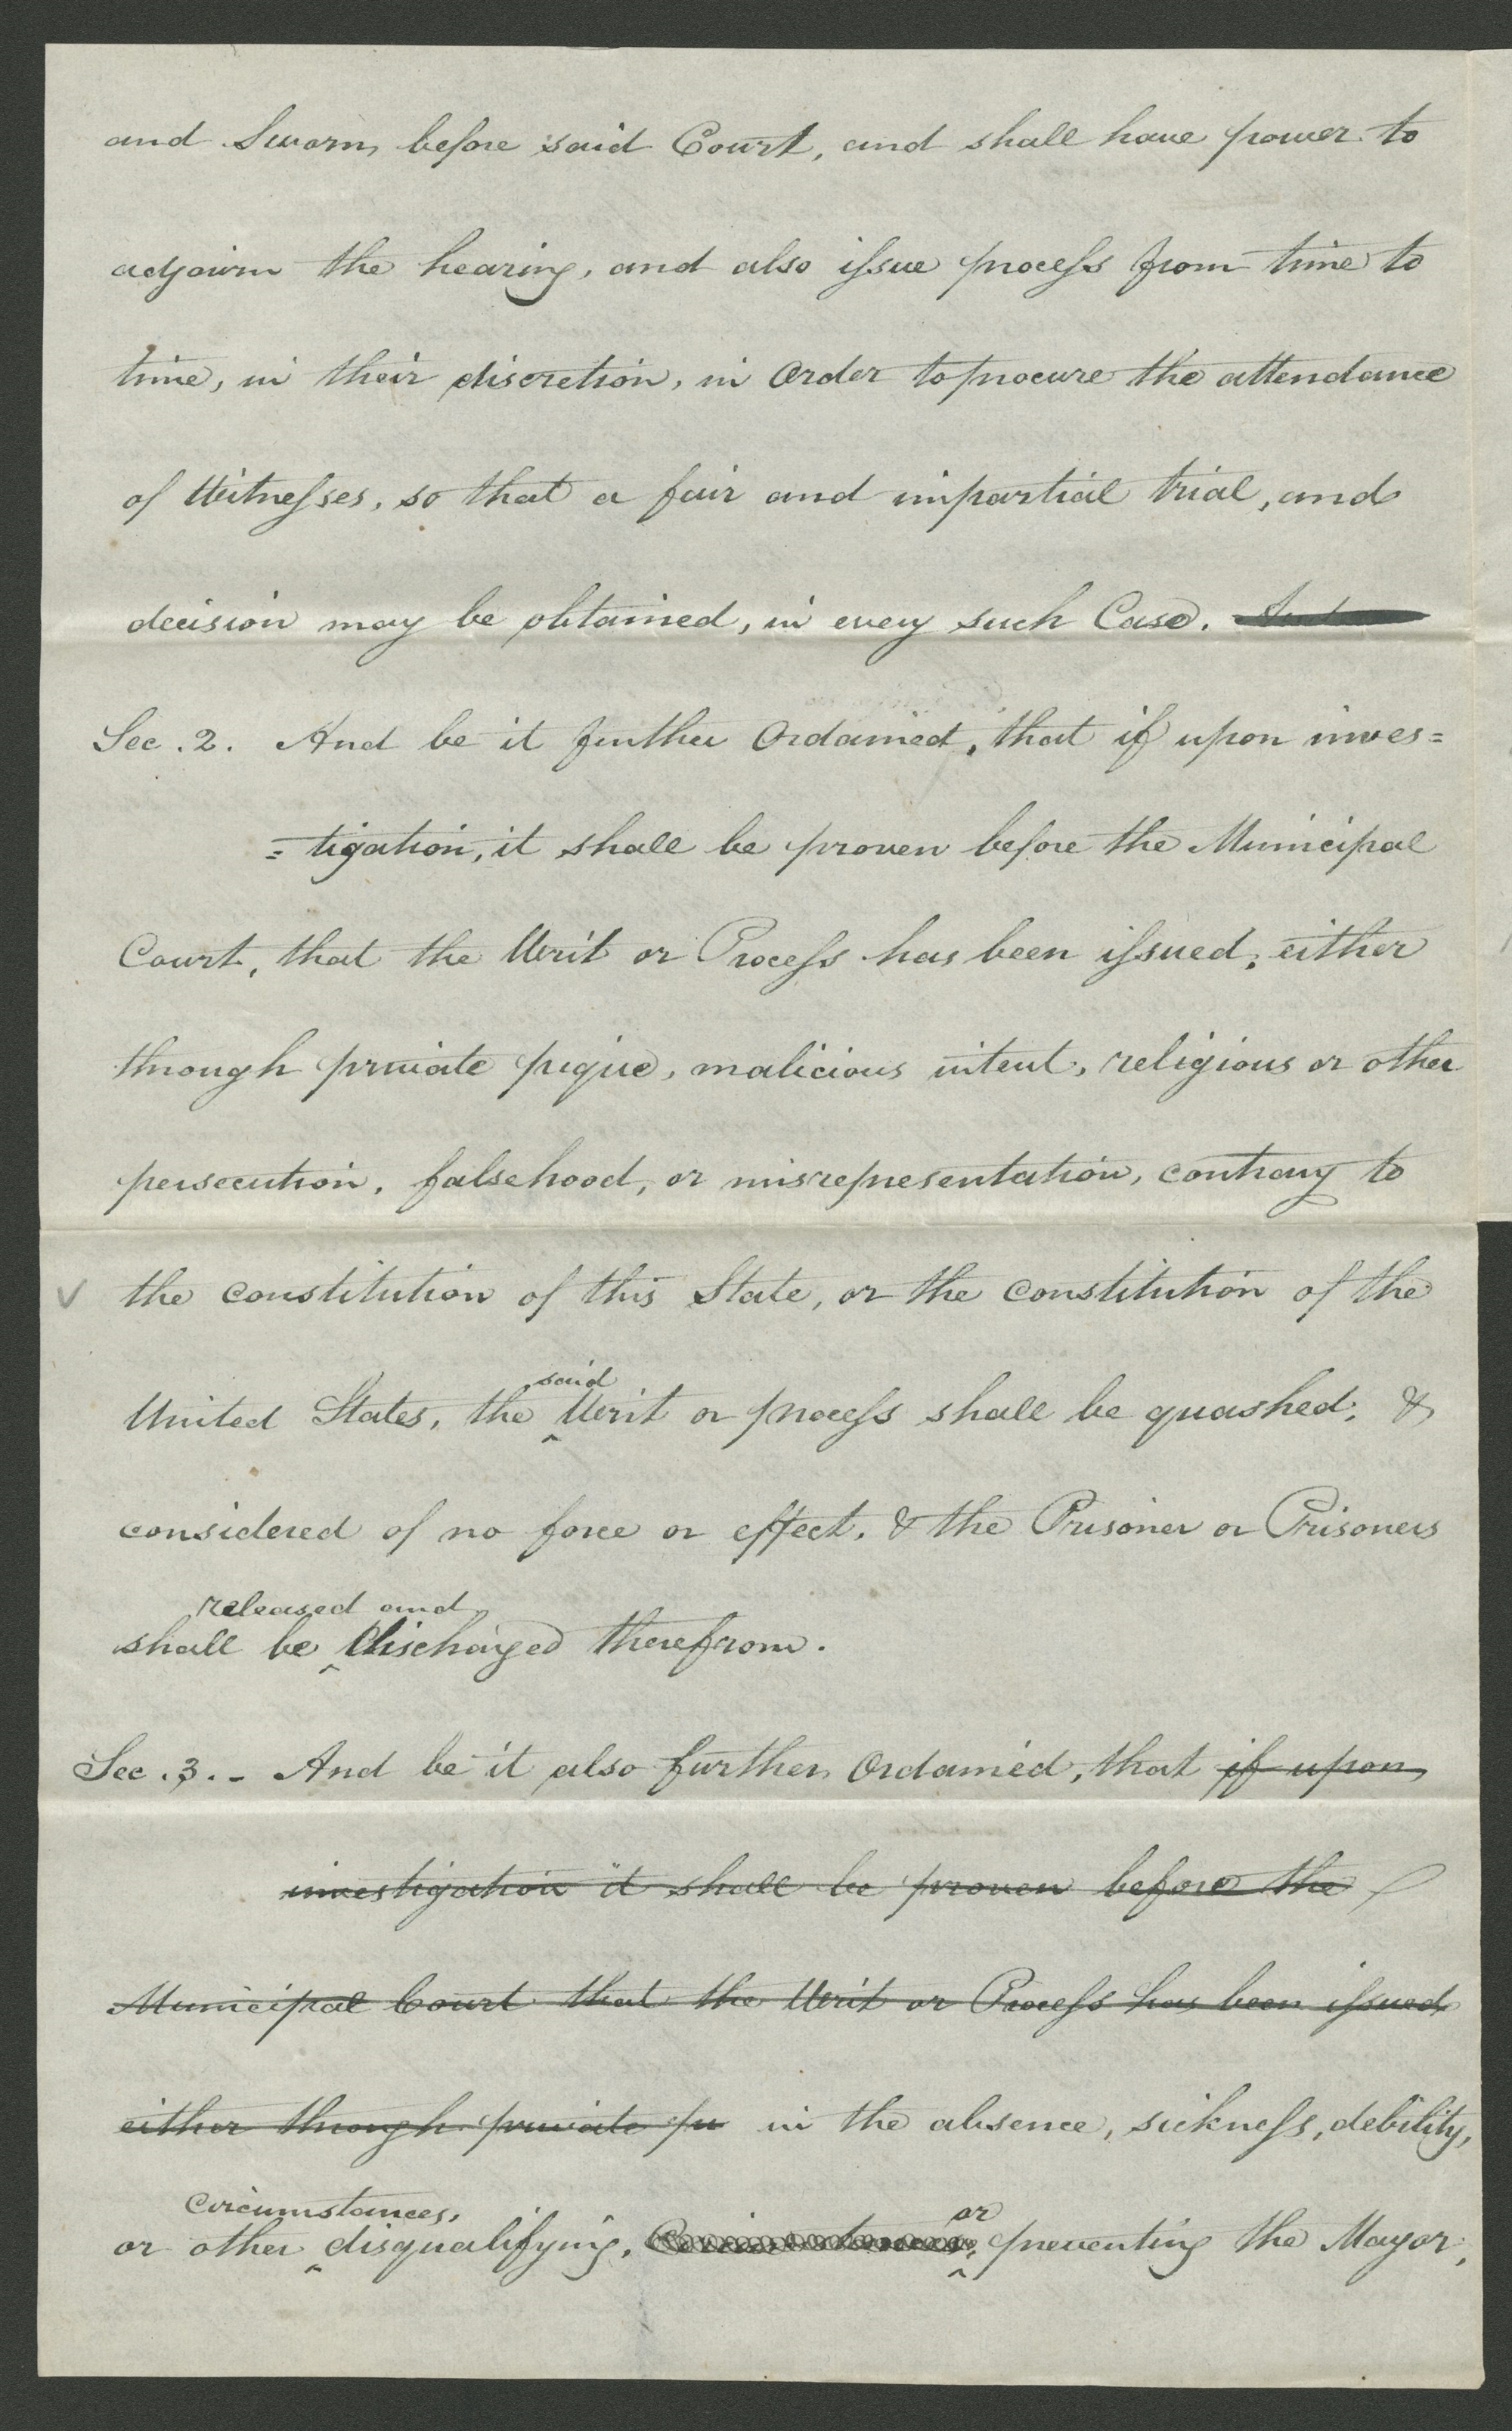 and Sworn before said Court, and shall have power to
adjourn the hearing, and also issue process from time to
time, in their discretion, in Order to procure the attendance
of Witnesses, so that a fair and impartial trial, and
decision may be obtained, in every such Case.
Sec. 2. And be it further Ordained, that if upon inves=
=tigation, it shall be proven before the Municipal
Court, that the Writ or Process has been issued, either
through private pique, malicious intent, religious or other
persecution, falsehood, or misrepresentation, contrary to
the constitution of this State, or the constitution of the
said
United States, the ^ Writ or process shall be quashed, &
considered of no force or effect, & the Prisoner or Prisoners
released and
shall be ^ discharged therefrom.
Sec. 3.- And be it also further Ordained, that if upon
investigation it shall be proven before the
Municipal Court that the Writ or Process has been issued
either through private pu in the absence, sickness, debility,
circumstances, or
or other ^ disqualifying, ^ preventing the Mayor,